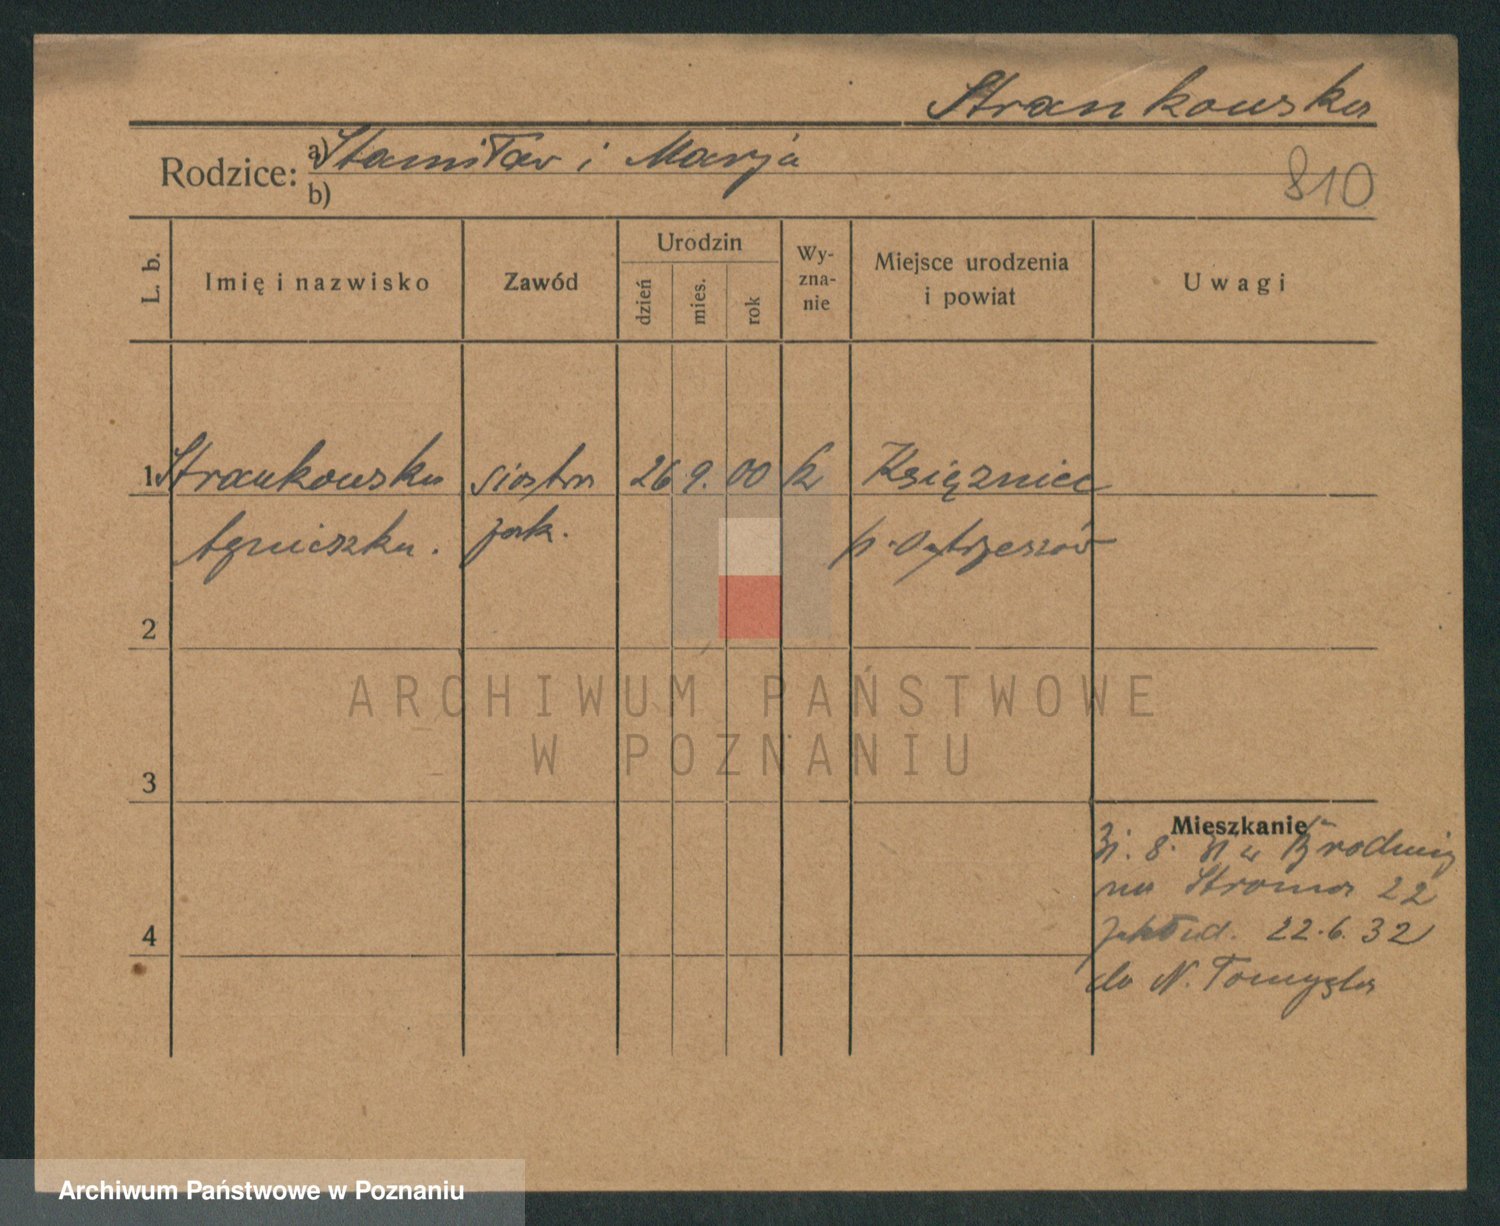 Strankowska
Rodzice: a) Stanisław i Marja
b)
810
L. b.
Imię i nazwisko
Zawód
Urodzin
dzień
mies.
rok
Wy-
zna-
nie
Miejsce urodzenia
i powiat
Uwagi
1 Strankowska siostra 26 9. 00 k Księżnice
Agnieszka. zak. p. Ostrzeszów
2
ARCHIWUM PAŃSTWOWE
W POZNANIU
3
Mieszkanie
8. Brodnicy
na Stroma 22
22.6.32
4
do N. Tomyśla
Archiwum Państwowe w Poznaniu